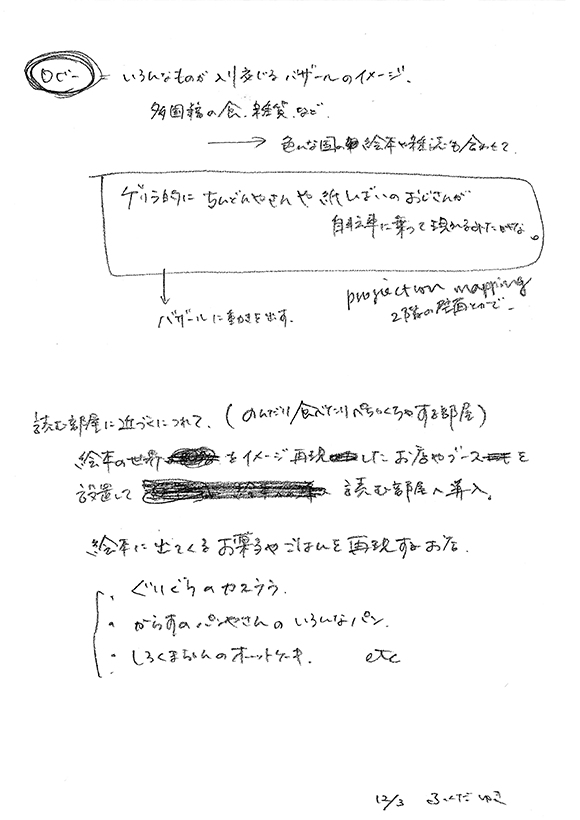 ロビー = いろんなものが入り交じるバザールのイメージ、
多国籍の食、雑貨、など
→ 色んな国の絵本や雑誌も合わせて
ゲリラ的にちんどんやさんや紙しばいのおじさんが
自転車に乗って現れるみたいな。
↓
バザールに動きを出す。
projection mapping
2階の壁面とかで
読む部屋に近づくにつれて、(のんだり/食べたりぺちゃくちゃする部屋)
絵本の世界をイメージ再現したお店やブースを
設置して 読む部屋へ導入。
絵本に出てくるお菓子やごはんを再現するお店
・ぐりぐらのカステラ.
・からすのパンやさんのいろんなパン.
・しろくまちゃんのホットケーキ. etc
12/3 ふくだ ゆき